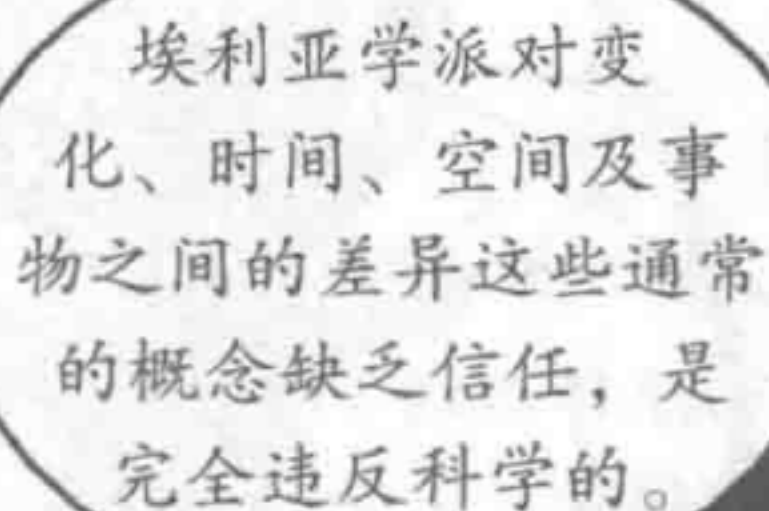 埃利亚学派对变
化、时间、空间及事
物之间的差异这些通常
的概念缺乏信任，是
完全违反科学的。